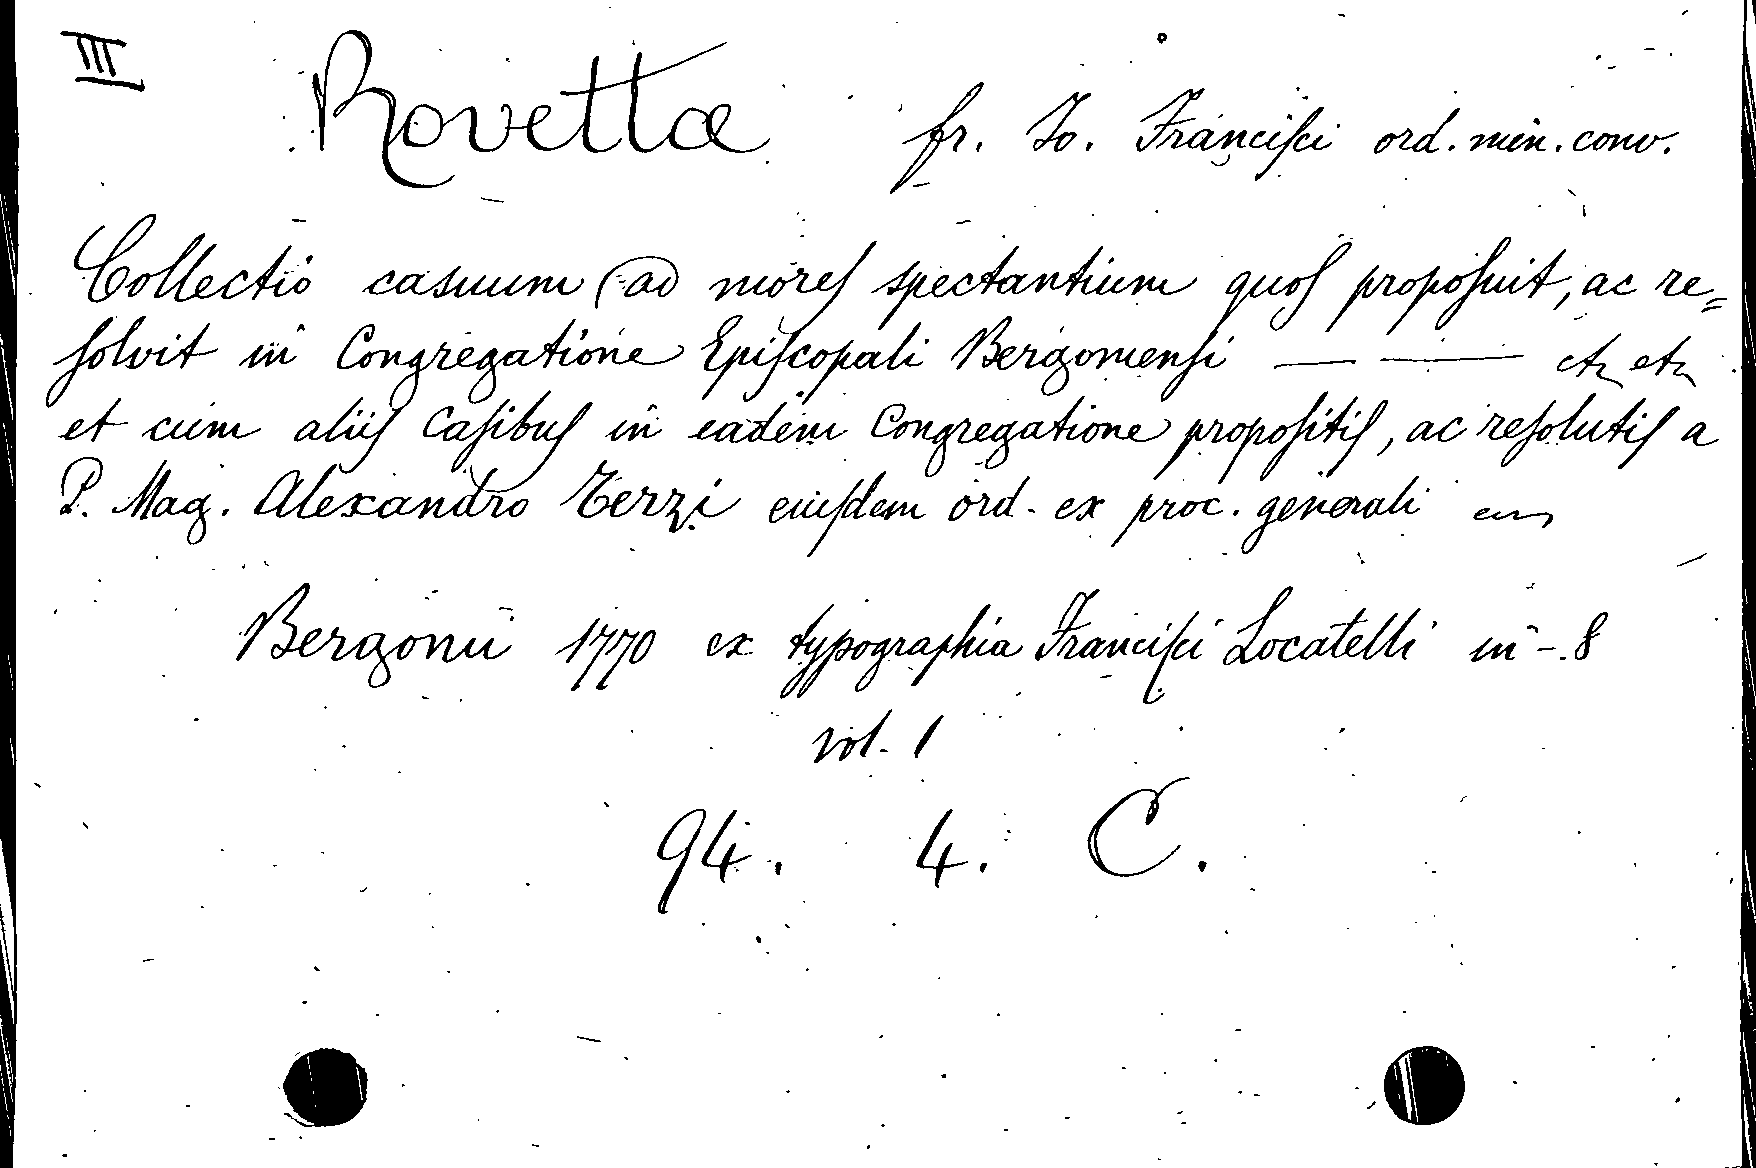 III
Rovettæ fr. Jo. Francisci ord. min. conv.
Collectio casuum ad mores spectantium quos proposuit, ac re=
solvit in Congregatione Episcopali Bergomensi — — etc etc
et cum aliis Casibus in eadem Congregatione propositis, ac resolutis a
P. Mag. Alexandro Terzi eiusdem ord. ex proc. generali
Bergomi 1770 ex typographia Francisci Locatelli in -. 8
vol. 1
94. 4. C.